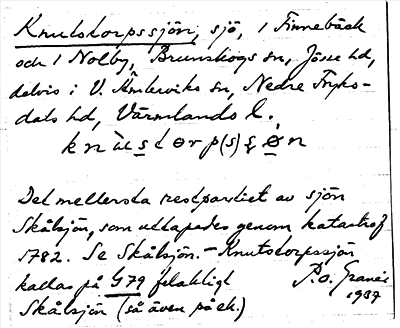 Knutstorpssjön, sjö, i Finnebäck
och i Nolby, Brunskogs sn, Jösse hd,
delvis i V. Ämterviks sn, Nedre Fryks-
dals hd, Värmlands l.
Det mellersta restpartiet av sjön
Skålsjön, som uttapades genom katastrof
1782. Se Skålsjön. - Knutstorpssjön
kallas på G79 felaktigt
Skålsjön (så även på ek.)
P.O. Granér
1937